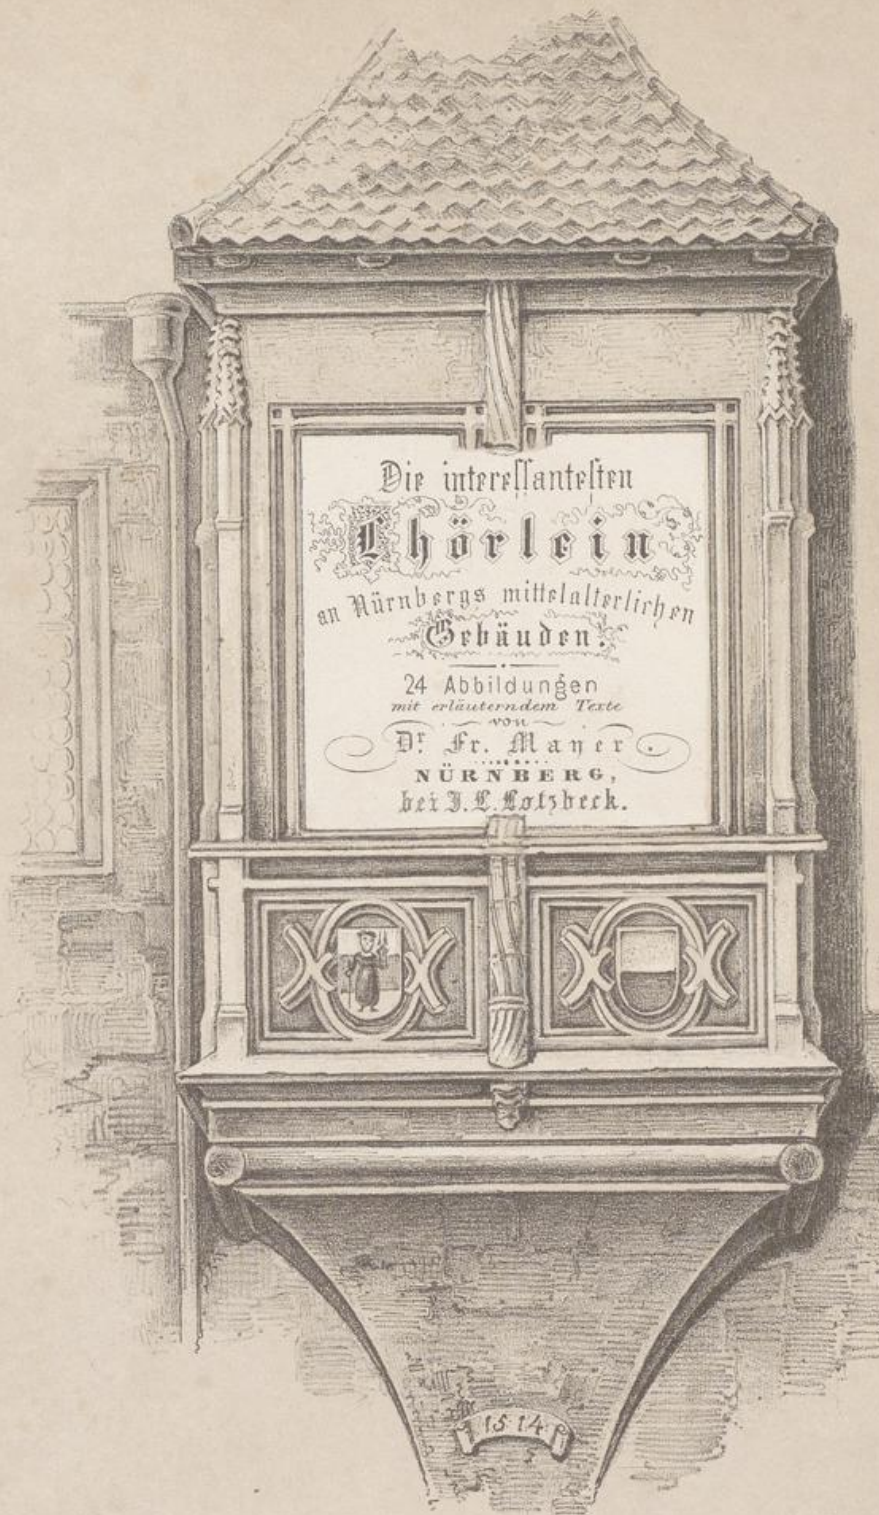 Die intereſſanteſten
Chörlein
an Nürnbergs mittelalterlichen
Gebäuden.
24 Abbildungen
mit erläuterndem Texte
von
Dr. Fr. Mayer.
NÜRNBERG,
bei J. L. Lotzbeck.
1514